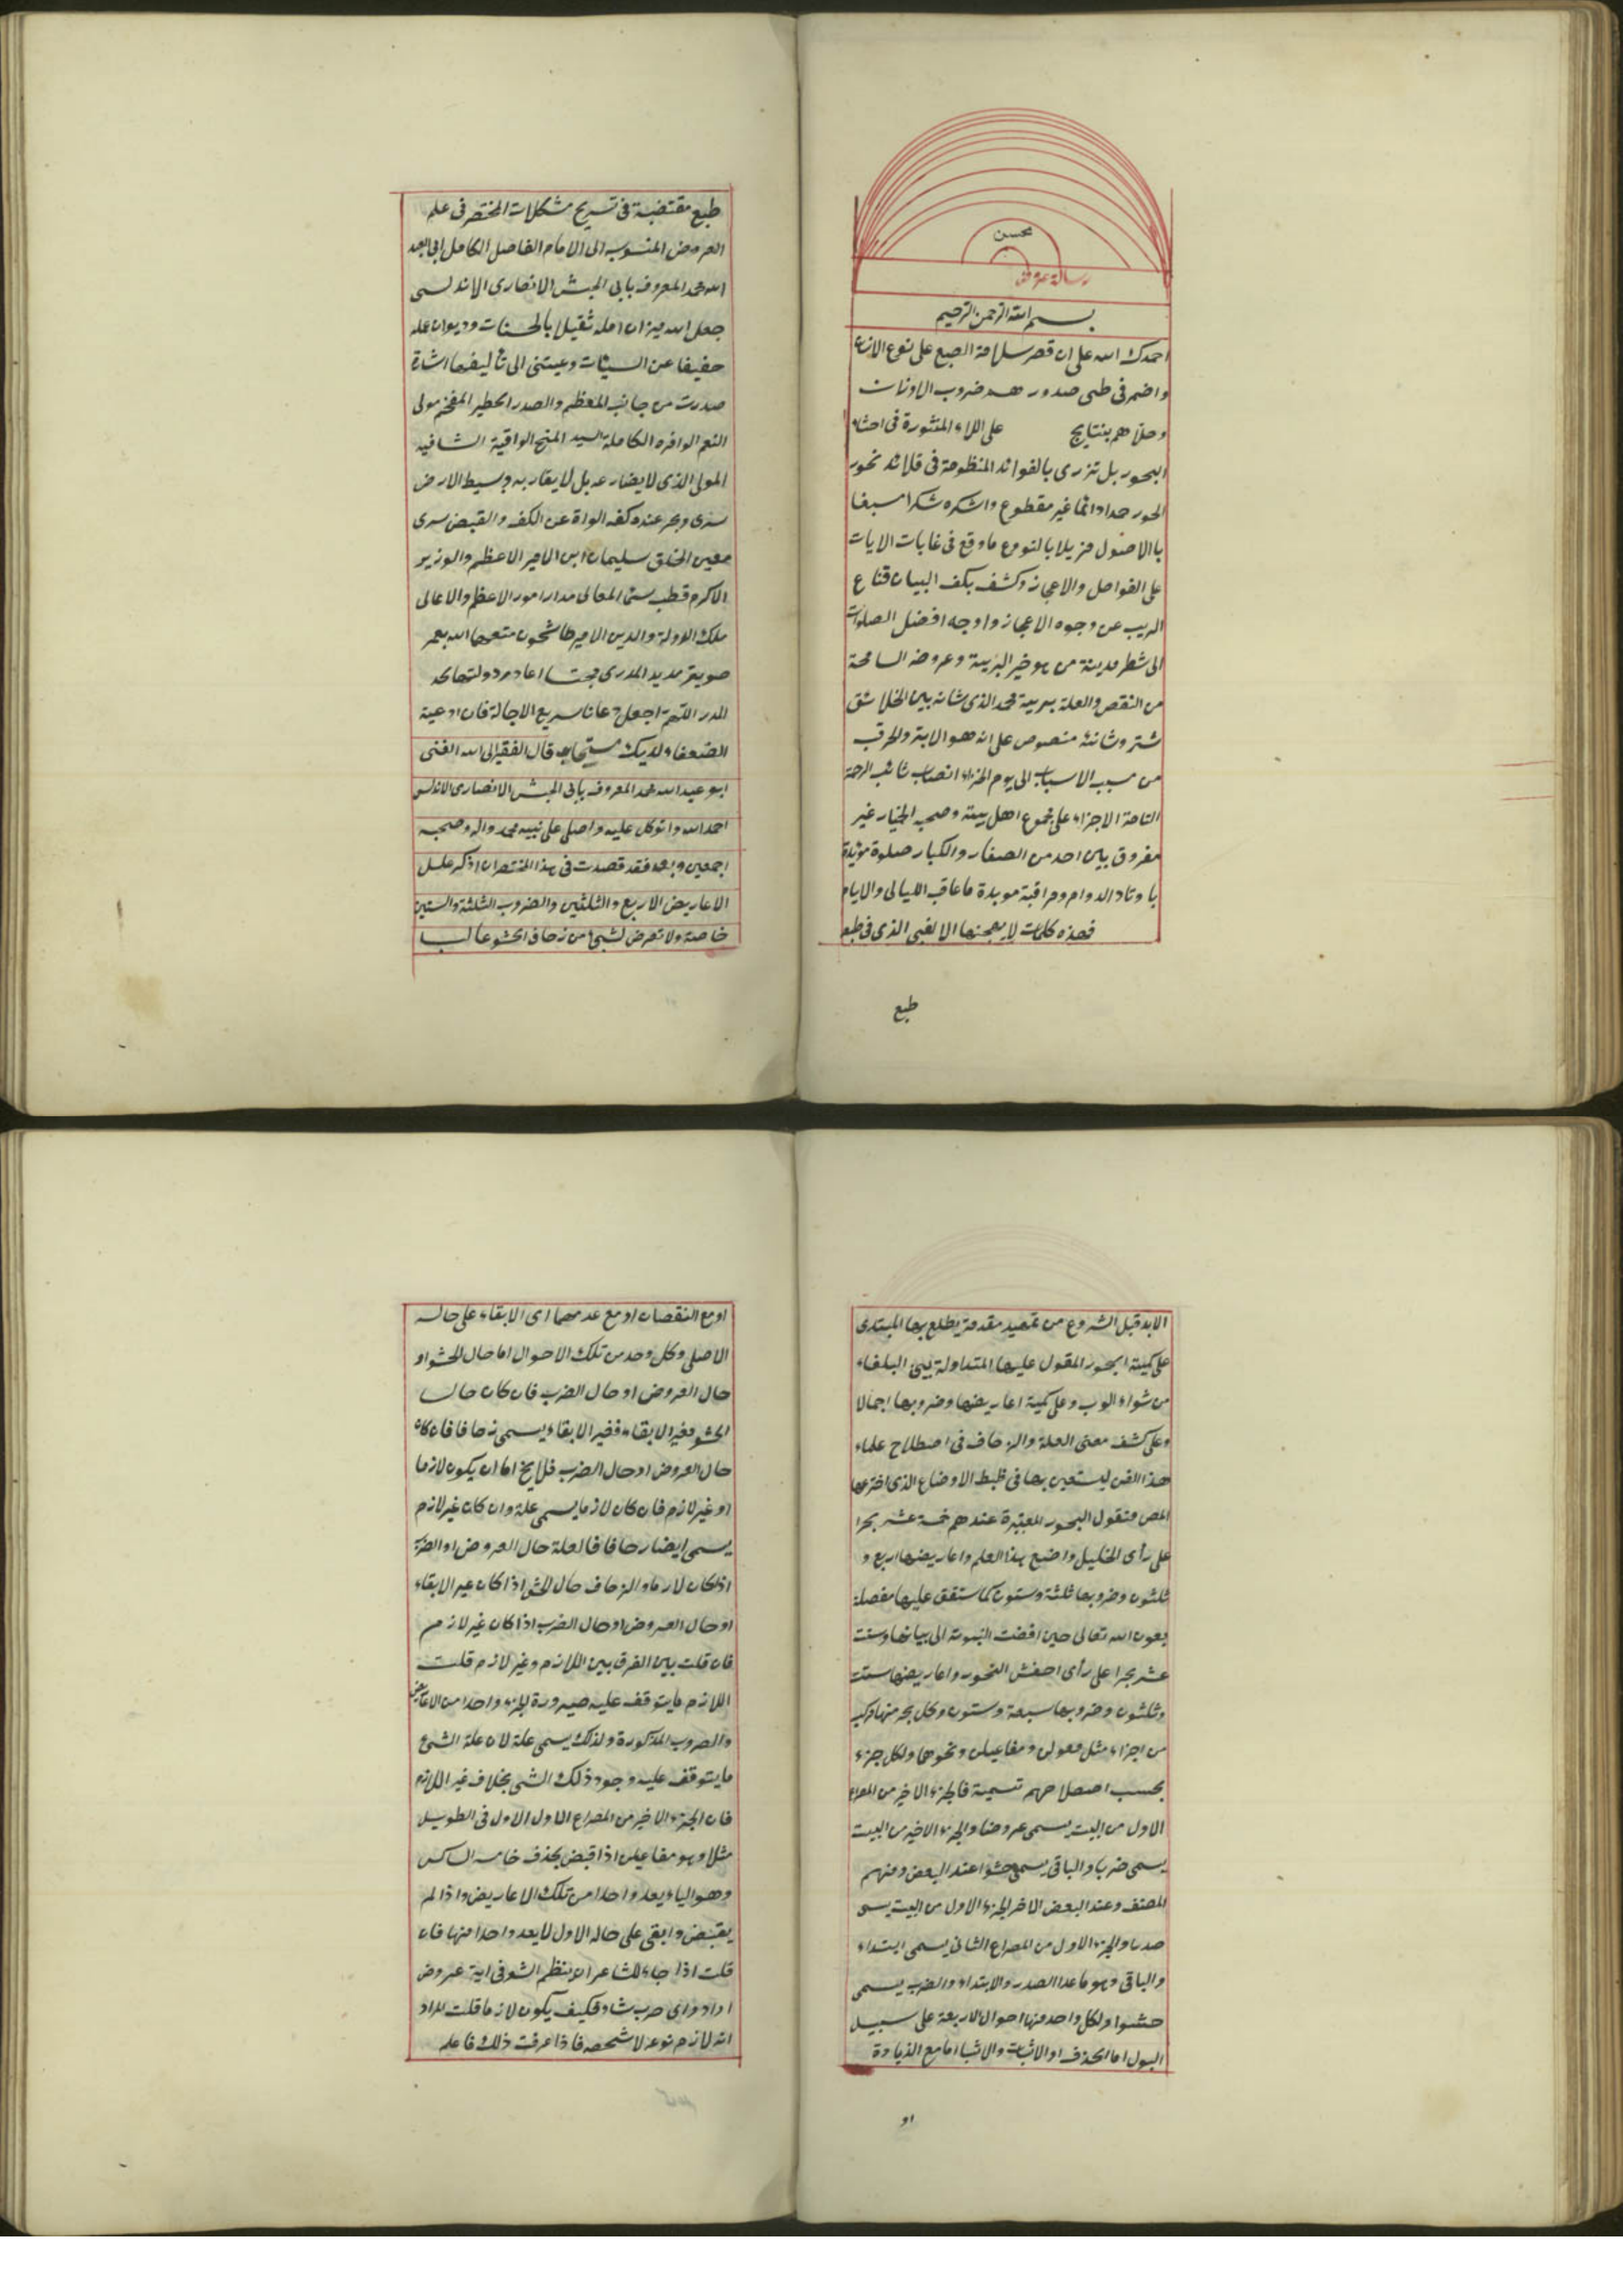 محسن
رسالة عروض
بسم الله الرحمن الرحيم
احمدك الله على ان قصر سلامة الطبع على نوع الانسان
واضمر فى طى صدورهم ضروب الاوزان
وحلاهم بنتايج على اللالى المنثورة فى احشاء
البحور بل تزرى بالفوائد المنظومة فى قلائد نحور
الحور حمدا دائما غير مقطوع واشكره شكرا مسبغا
بالاصول مزيلا بالتنوع ما وقع فى غايات الايات
على الفواصل والاعجاز وكشف بكف البيان قناع
الريب عن وجوه الاعجاز واوجه افضل الصلوات
الى شطر مدينة من هو خير البرية وعروضه السامحة
من النقص والعلة برية محمد الذى شانه بين الخلائق
شتر وشانئه منصوص على انه هو الابتر والخرب
من سبب الاسباب الى يوم الجزاء انصباب شائب الرحمة
التامة الاجزاء على مجموع اهل بيته وصحبه الخيار غير
مفروق بين احد من الصغار والكبار صلوة مؤيدة
باوتاد الدوام ومراقبة موبدة ما عاقب الليالى والايام
فهذه كلمات لا يهجنها الا الغبى الذى فى طبع
طبع
طبع مقتضبة فى تسريح مشكلات المختصر فى علم
العروض المنسوب الى الامام الفاضل الكامل ابى عبد
الله محمد المعروف بابى الجيش الانصارى الاندلسى
جعل الله ميزان امله ثقيلا بالحسنات وديوان عمله
خفيفا عن السيئات وعيتنى الى تاليفها اشارة
صدرت من جانب المعظم والصدر الخطير المفخم مولى
النعم الوافرة الكاملة السيد المنح الواقية الشافيه
المولى الذى لا يضارعه بل لا يقاربه وبسيط الارض
سرى وبحر عنده كفه الواة عن الكف والقبض سرى
معين الخلق سليمان ابن الامير الاعظم والوزير
الاكرم قطب سماء المعالى مدار امور الاعظم والاعالى
ملك الدولة والدين الامير طاشخون متعهما الله بعمر
طويل مديد المدى اعاد دولتهما
اللهم اجعل دعانا سريع الاجابة فان ادعية
الضعفاء لديك مستجاب قال الفقير الى الله الغنى
ابو عبد الله محمد المعروف بابى الجيش الانصارى الاندلسى
احمد الله واتوكل عليه واصلى على نبيه محمد واله وصحبه
اجمعين وبعد فقد قصدت فى هذا المختصر ان اذكر علل
الاعاريض الاربع والثلثين والضروب الثلثة والستين
خاصة ولا تعرض لشئ من زحاف الحشو غالبا
الابد قبل الشروع من تمهيد مقدمة يطلع بها المبتدى
على كمية البحور المقول عليها المتداولة بين البلغاء
من شواء العرب وعلى كمية اعاريضها وضروبها اجمالا
وعلى كشف معنى العلة والزحاف فى اصطلاح علماء
هذا الفن ليستعين بها فى ظبط الاوضاع الذى اخترعها
المص فنقول البحور المعتبرة عندهم خمسة عشر بحرا
على رأى الخليل واضع هذا العلم واعاريضها اربع و
ثلثون وضروبها ثلثة وستون كما ستقف عليها مفصلة
بعون الله تعالى حين افضت النوبة الى بيانها وستة
عشر بحرا على رأى اخفش النحور واعاريضها ستة
وثلثون وضروبها سبعة وستون وكل بحر منها مركب
من اجزاء مثل فعولن ومفاعيلن ونحوها ولكل جزء
بحسب اصطلاحهم تسمية فالجزء الاخير من المصراع
الاول من البيت يسمى عروضا والجزء الاخير من البيت
يسمى ضربا والباقى يسمى حشوا عند البعض ومنهم
المصنف وعند البعض الاخر الجزء الاول من البيت يسمى
صدرا والجزء الاول من المصراع الثانى يسمى ابتداء
والباقى وهو ما عدا الصدر والابتداء والضرب يسمى
حشوا ولكل واحد منها احوال الاربعة على سبيل
البدل اما الحذف او الاثبات والاثبات اما مع الزيادة
او
او مع النقصان او مع عدمهما اى الابقاء على حاله
الاصلى وكل وحد من تلك الاحوال اما حال الحشو او
حال العروض او حال الضرب فان كان حال
الحشو فغير الابقاء فغير الابقاء يسمى زحافا فان كان
حال العروض او حال الضرب فلا يخ اما ان يكون لازما
او غير لازم فان كان لازما يسمى علة وان كان غير لازم
يسمى ايضا زحافا فالعلة حال العروض او الضرب
اذا كان لازما والزحاف حال الحشو اذا كان غير الابقاء
او حال العروض او حال الضرب اذا كان غير لازم
فان قلت بين الفرق بين اللازم وغير لازم قلت
اللازم ما يتوقف عليه صيرورة الجزء واحدا من الاعاريض
والضروب المذكورة ولذلك يسمى علة لان علة الشئ
ما يتوقف عليه وجود ذلك الشئ بخلاف غير اللازم
فان الجزء الاخير من المصراع الاول الاول فى الطويل
مثلا وهو مفاعيلن اذا قبض بحذف خامسه الساكن
وهو الياء يعد واحدا من تلك الاعاريض واذا لم
يقبض وابقى على حاله الاول لا يعد واحدا منها فان
قلت اذا جاء للشاعر ان ينظم الشعر فى اية عروض
اراد واى ضرب شاء فكيف يكون لازما قلت المراد
انه لازم نوعه لا شخصه فاذا عرفت ذلك فاعلم